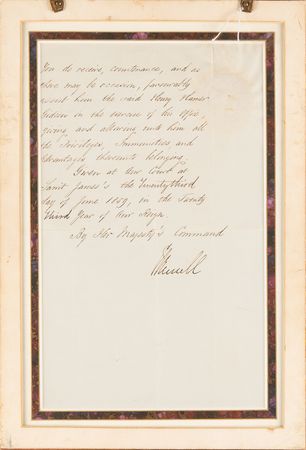 You do receive, countenance, and as
there may be occasion, favourably
assist him the said Henry Hamer
in the exercise of his office,
giving and allowing unto him all
the Privileges, Immunities, and
Advantages thereunto belonging.
Given at Our Court at
Saint James's the Twenty third
day of June 1859, in the Twenty
third Year of Our Reign.
By Her Majesty's Command
J Russell